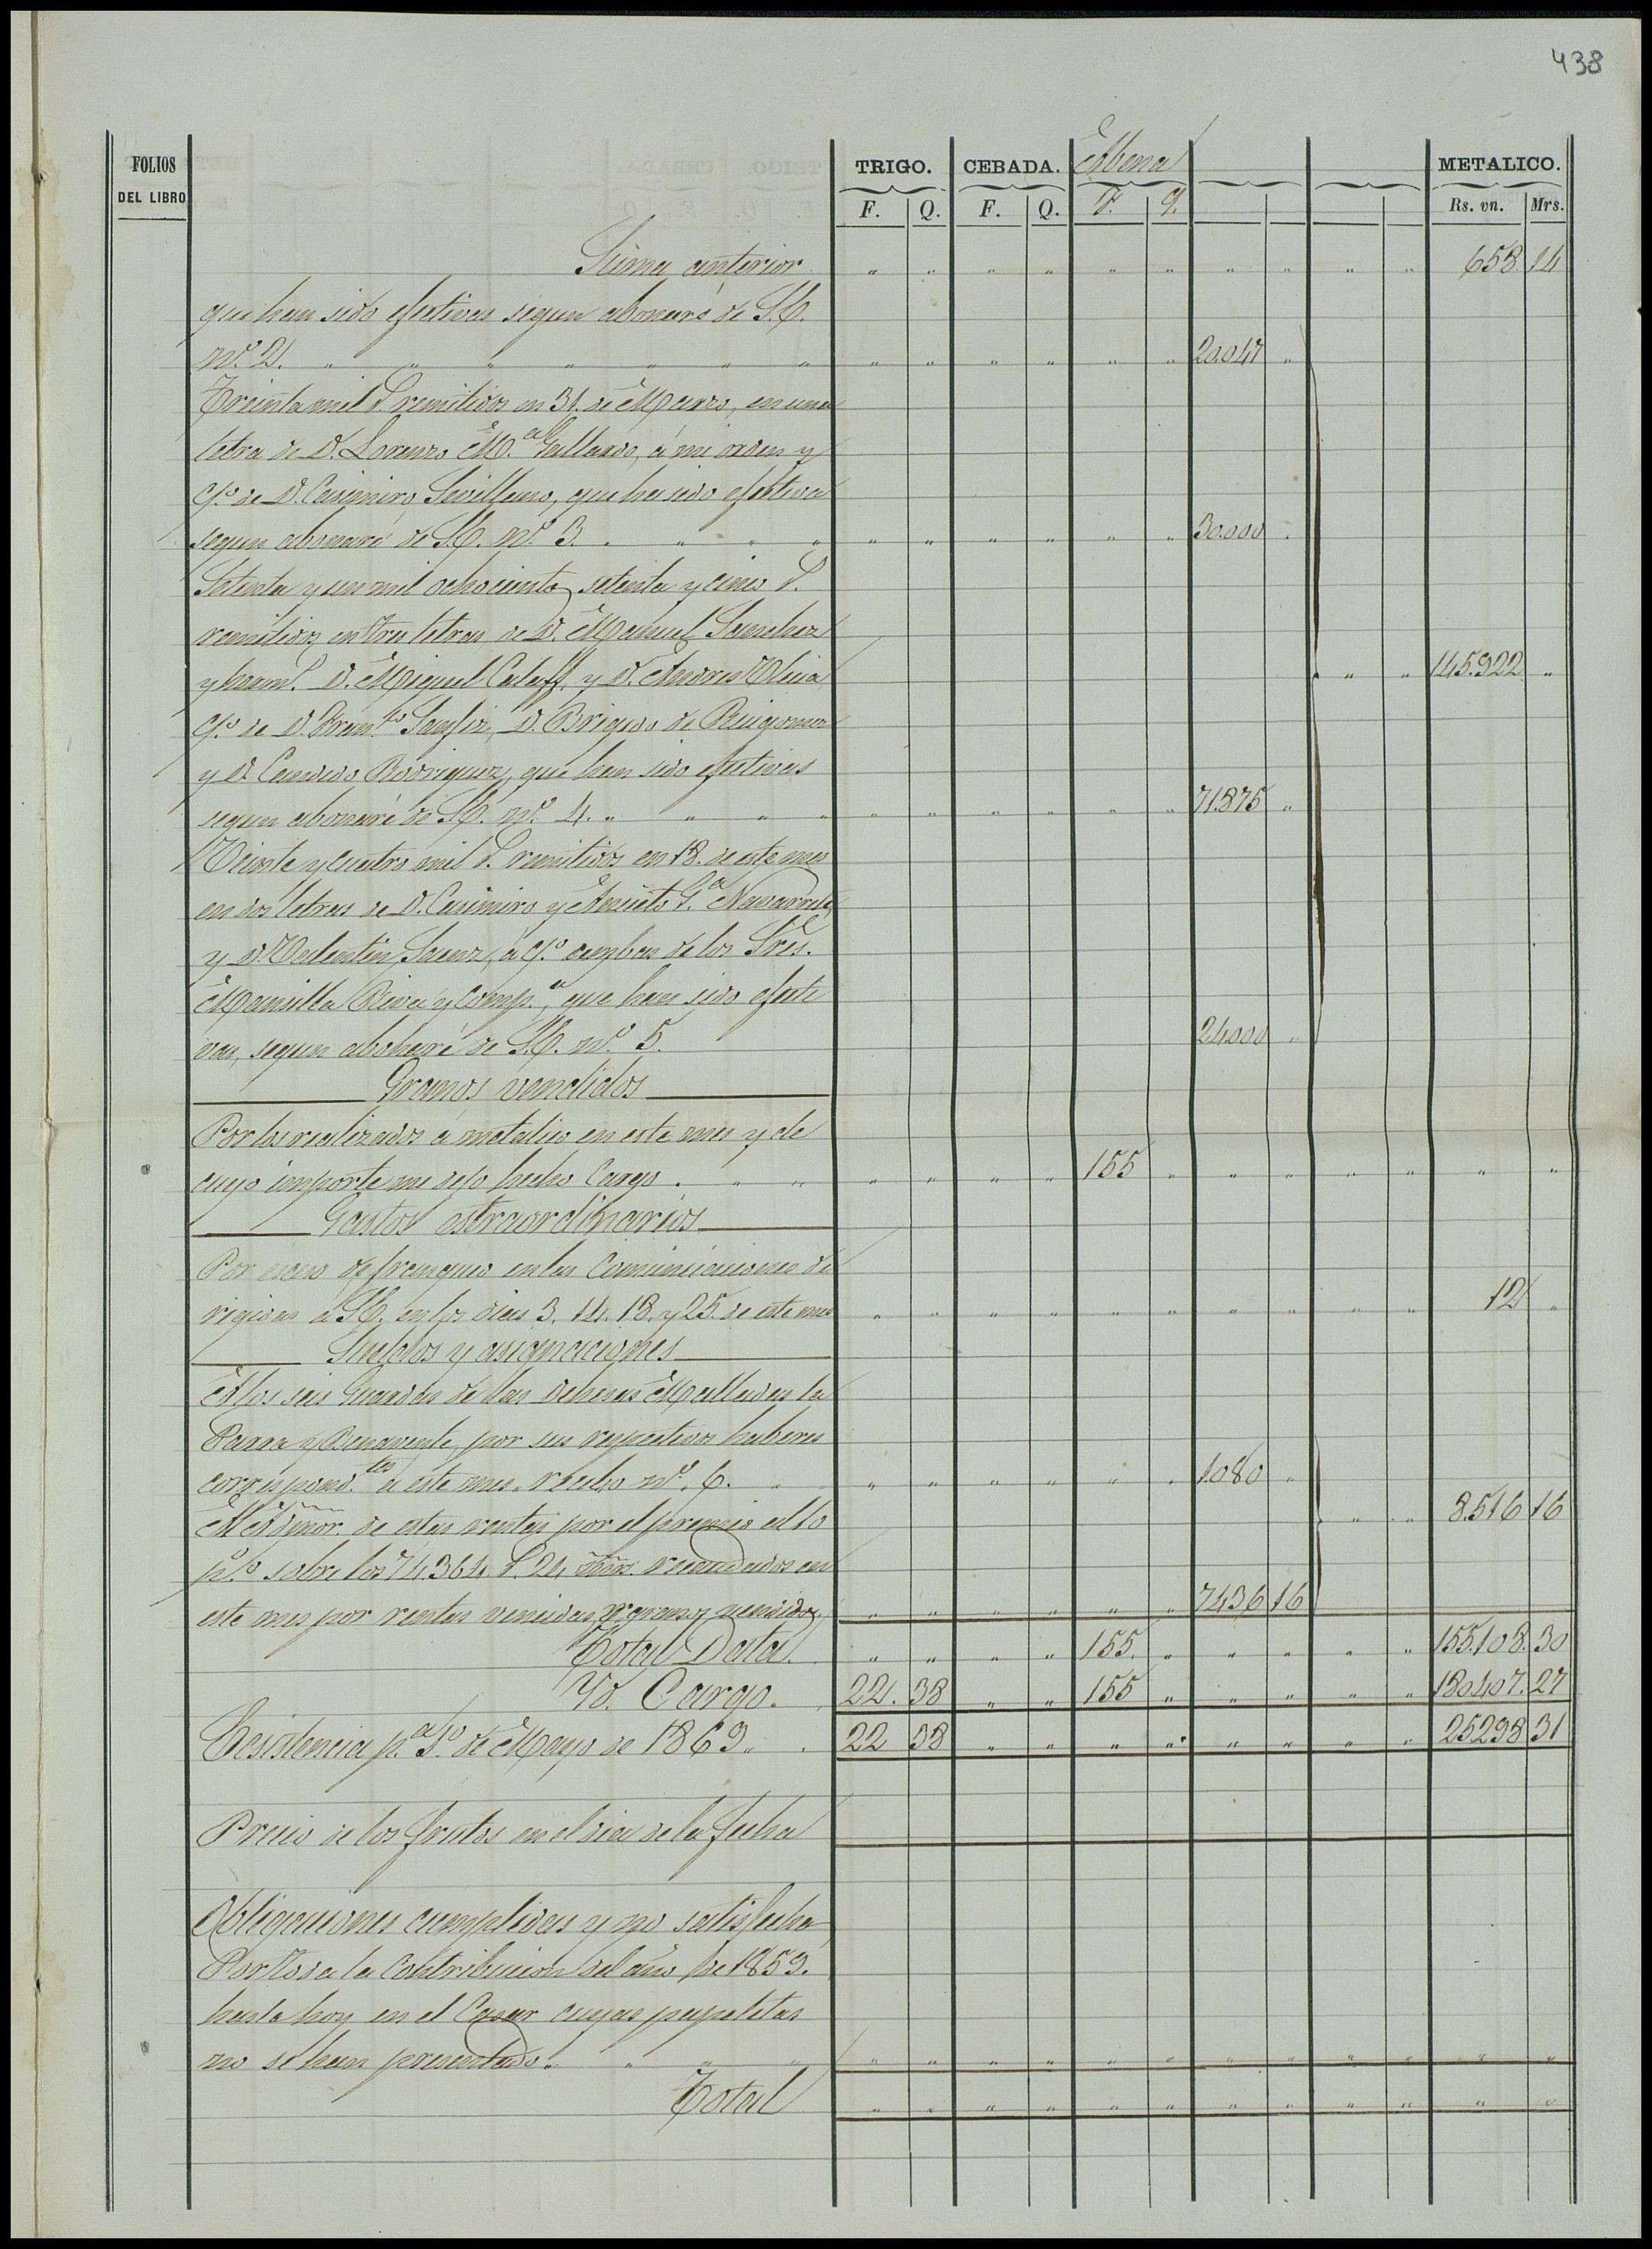 438
FOLIOS DEL LIBRO
TRIGO. CEBADA. Abena METALICO.
F. Q. F. Q. F. Q. Rs. vn. Mrs.
Suma anterior " " " " " " " " " " 658 14
que han sido efectivas segun abonaré de S.E.
nº 2. " " " " " " " " " " " " " 20.047 "
Treinta mil rs remitidos en 31. de Marzo, en una
letra de D. Lorenzo M.ª Gallardo, á mi orden y
cº de D. Casimiro Sevillano, que ha sido efectiva
segun abonaré de S.E. nº 3. " " " " " " " " " 30.000 "
Setenta y un mil ochocientos setenta y cinco rs.
remitidos en tres letras de D. Manuel Sanchez
y herms. D. Miguel Calaff, y D. Andres Oliva " " 145.922 "
cº de D. D. Brigido de
y D. Candido Rodriguez, que han sido efectivas
segun abonaré de S.E. nº 4. " " " " " " " " " " 71.875 "
Veinte y cuatro mil rs. remitidos en 18. de este mes
en dos letras de D. Casimiro y Aniceto G.ª Navarrete,
y D. Valentin Saenz, á cº ambas de los Sres.
Mansilla Riva y Comp.ª, que han sido efecti
vas, segun abonaré de S.E. nº 5. 24.000 "
Granos vendidos
Por los realizados á metalico en este mes y de
cuyo importe me dejo hecho Cargo. " " " " " " 155 " " " " " " "
Gastos estraordinarios
Por esceso de franqueo en las Comunicaciones di
rigidas á S.E. en los dias 3. 14. 18. y 25. de este mes " " " " " " " " " " 12 "
Sueldos y asignaciones
A los seis Guardas de las Dehesas Malladas la
Parra y Benavente, por sus respectivos haberes
correspond.tes á este mes, recibo nº 6. " " " " " " " 1.080 "
Al Admor. de estas rentas por el premio al 10 " " 8.516 16
pº% sobre los 74.364 rs. 24 mrs. recaudados en
este mes por rentas vencidas y granos vendidos. " " " " " " 7436 16
Total Data. " " " " 155. " " " " " 155.108. 30
Yd. Cargo. 22. 38 " " 155 " " " " " 180.407. 27
Ecsistencia p.ª 1º de Mayo de 1863. " 22 38 " " " " " " " " 25298 31
Precio de los frutos en el dia de la fecha
Obligaciones cumplidas y no satisfechas
Por toda la Contribucion del año de 1859.
hasta hoy en el Casar cuyas papeletas
no se han presentado. " " " " " " " " " " " " " " "
Total " " " " " " " " " " " "